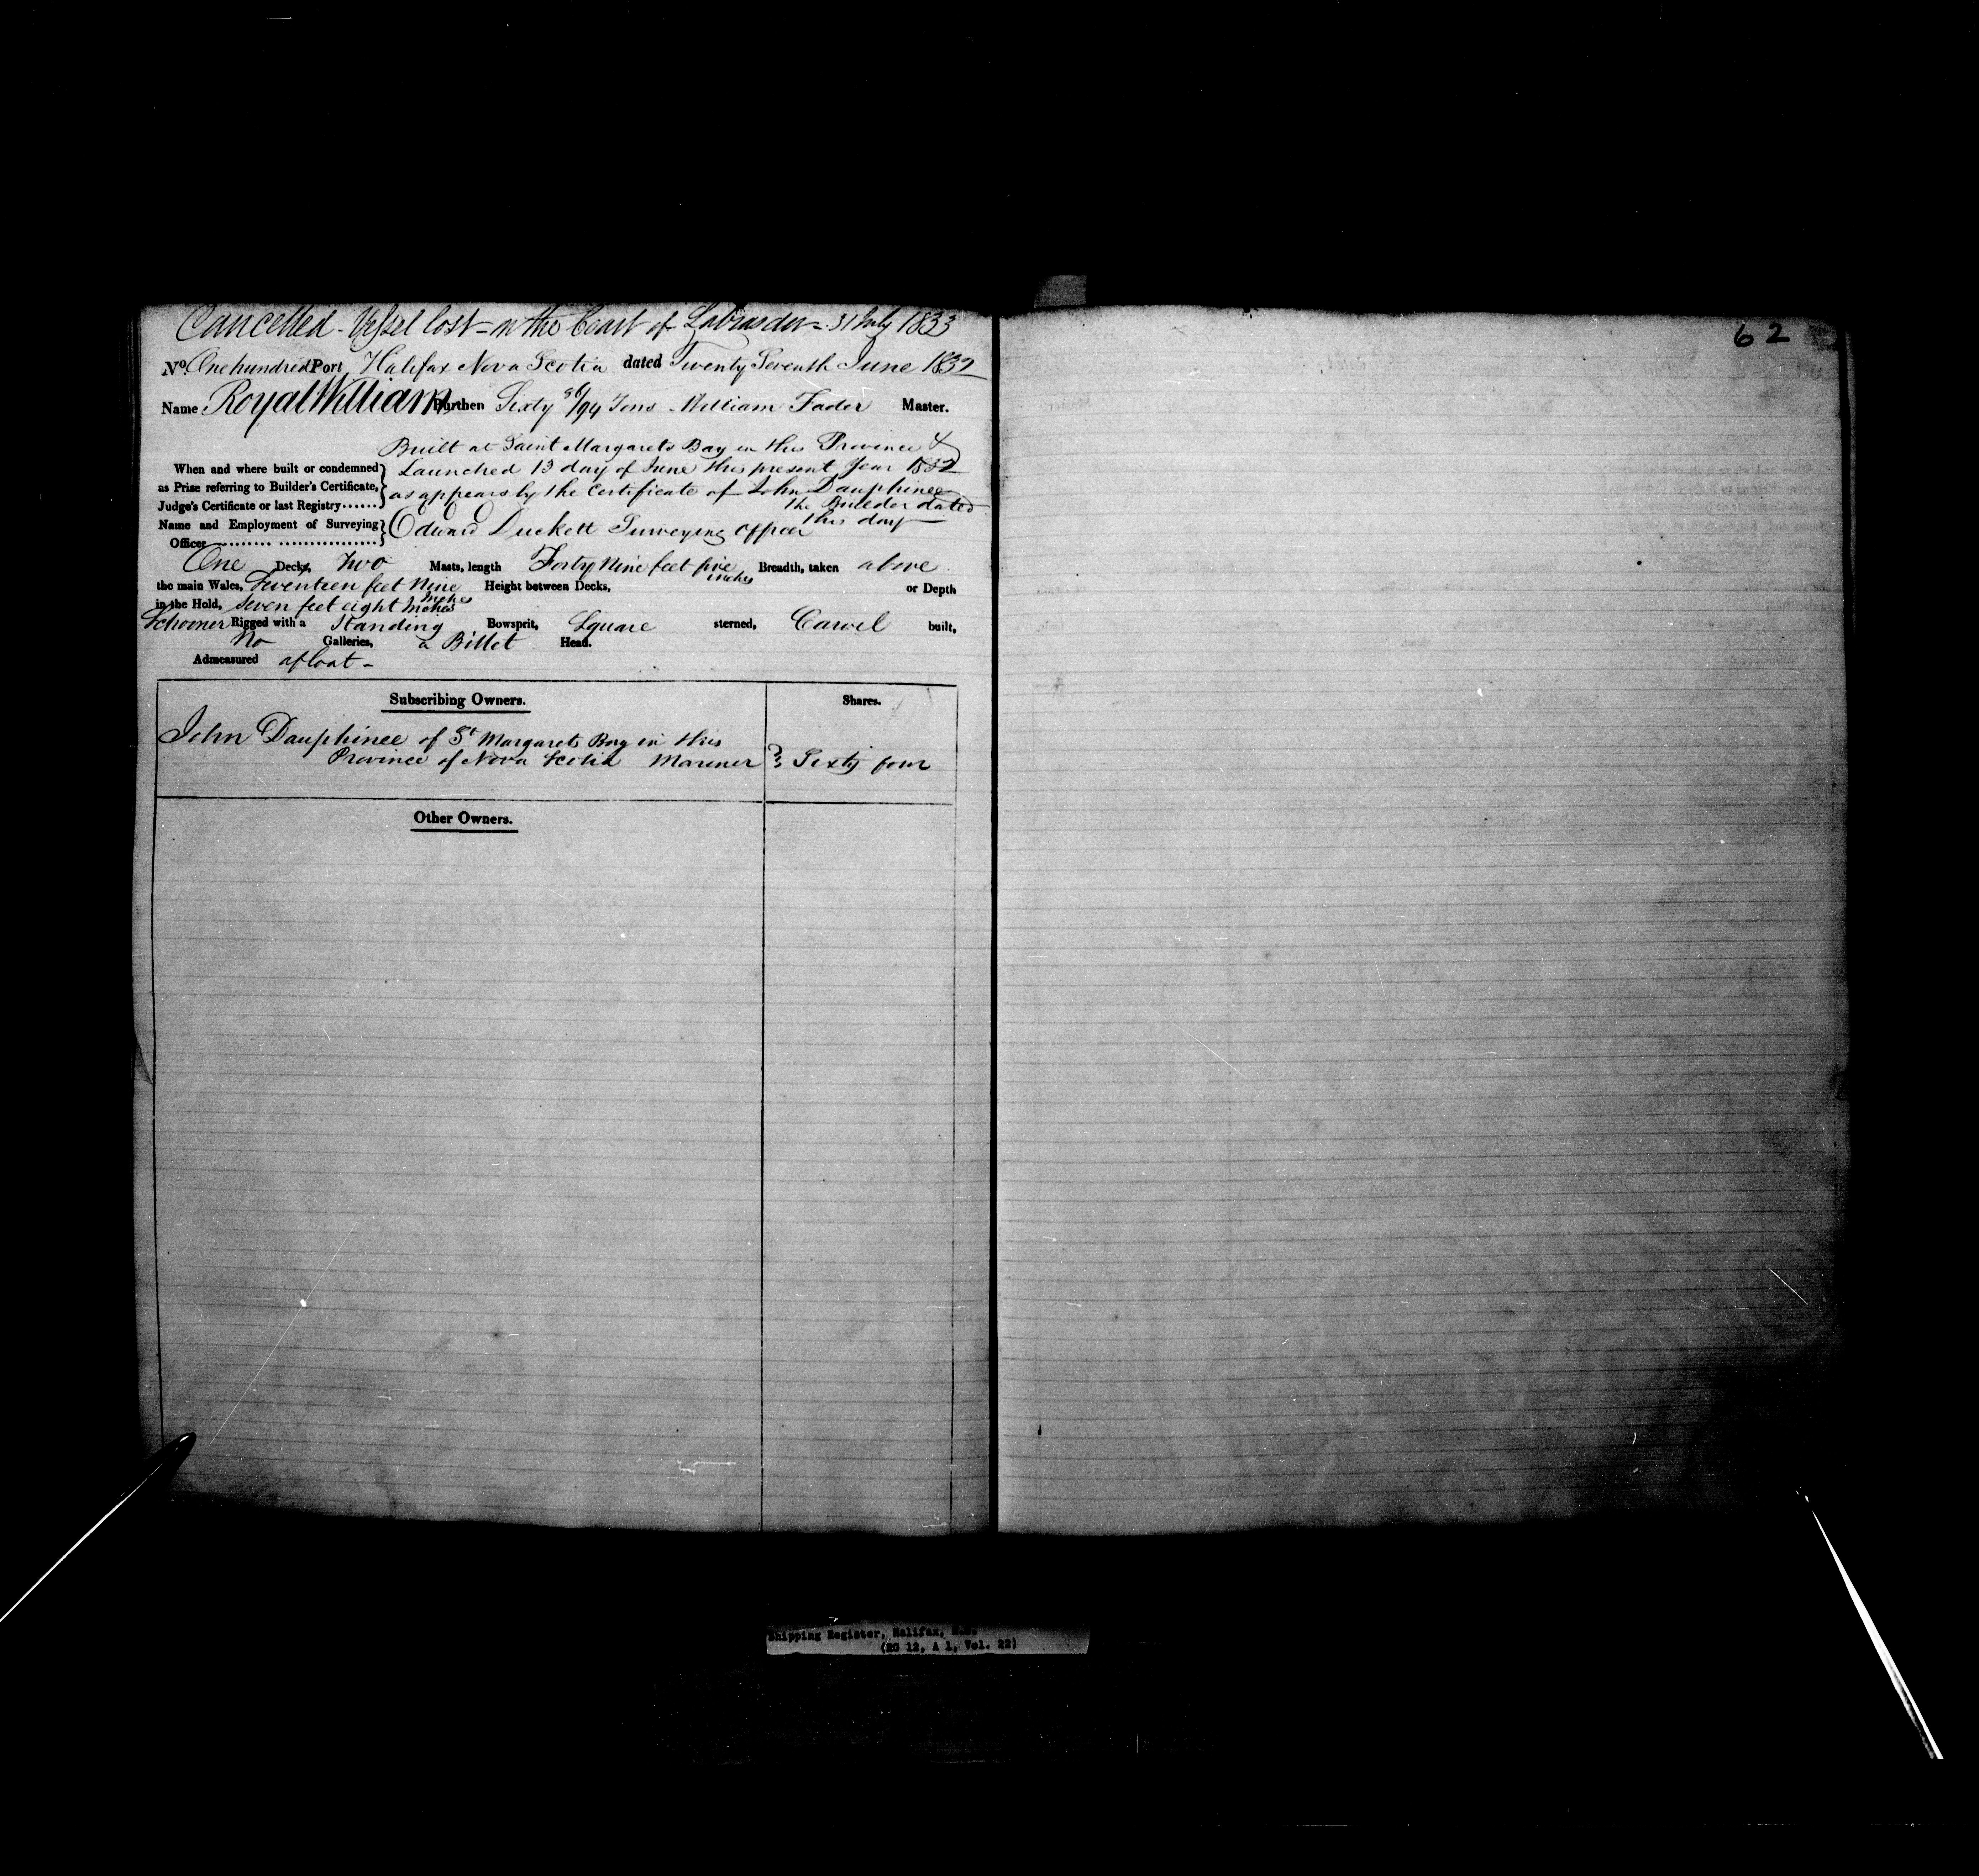 Cancelled - Vessel lost - on the Coast of Labrador - 31 July 1833
62
No. One hundred Port Halifax Nova Scotia dated Twenty Seventh June 1832
Name Royal William Burthen Sixty /94 Tons - William Fader Master.
Built at Saint Margarets Bay in this Province &
When and where built or condemned Launched 13 day of June this present Year 1832
as Prize referring to Builder's Certificate, as appears by the Certificate of John Dauphinee
Judge's Certificate or last Registry...... the Builder dated
this day
Name and Employment of Surveying Edward Duckett Surveying Officer
Officer ......... .................
One Decks, Two Masts, length Forty Nine feet five inches Breadth, taken above
the main Wales, Seventeen feet Nine Inches Height between Decks, or Depth
in the Hold, Seven feet eight Inches
Schooner Rigged with a Standing Bowsprit, Square sterned, Carvel built,
No Galleries, a Billet Head.
Admeasured afloat -
Subscribing Owners. Shares.
John Dauphinee of St Margarets Bay in this
Province of Nova Scotia Mariner } Sixty four
Other Owners.
Shipping Register, Halifax, N.S.
(RG 12, A 1, Vol. 22)